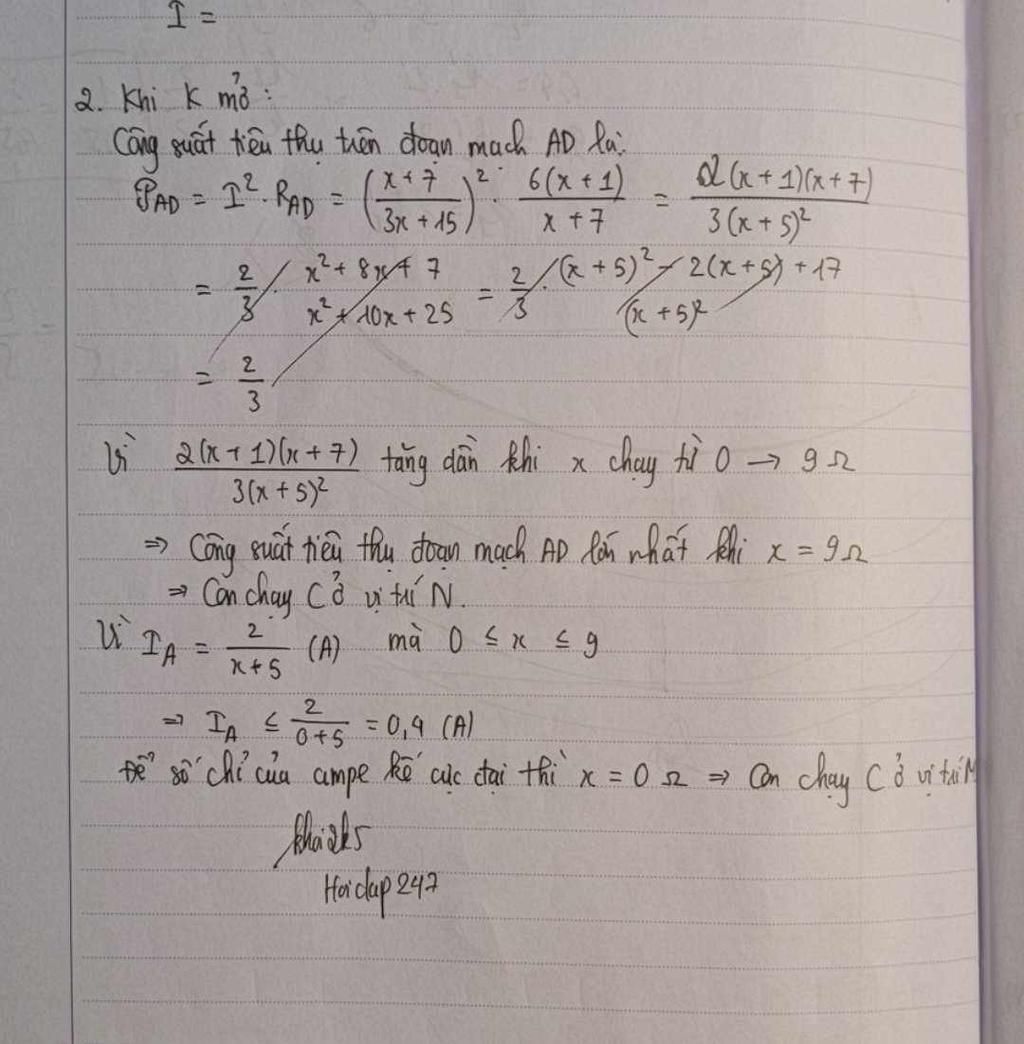 I =
2. Khi K mở :
Công suất tiêu thụ trên đoạn mạch AD là:
P_AD = I² . R_AD = ((x + 7)/(3x + 15))² . 6(x + 1)/(x + 7) = 2(x + 1)(x + 7)/3(x + 5)²
= 2/3 . (x² + 8x + 7)/(x² + 10x + 25) = 2/3 . ((x + 5)² - 2(x + 5) + 17)/(x + 5)²
= 2/3
Vì 2(x + 1)(x + 7)/3(x + 5)² tăng dần khi x chạy từ 0 → 9 Ω
⇒ Công suất tiêu thụ đoạn mạch AD lớn nhất khi x = 9 Ω
⇒ Con chạy C ở vị trí N.
Vì I_A = 2/(x + 5) (A) mà 0 ≤ x ≤ 9
⇒ I_A ≤ 2/(0 + 5) = 0,4 (A)
Để số chỉ của ampe kế cực đại thì x = 0 Ω ⇒ Con chạy C ở vị trí M
khai2k5
Hoidap247